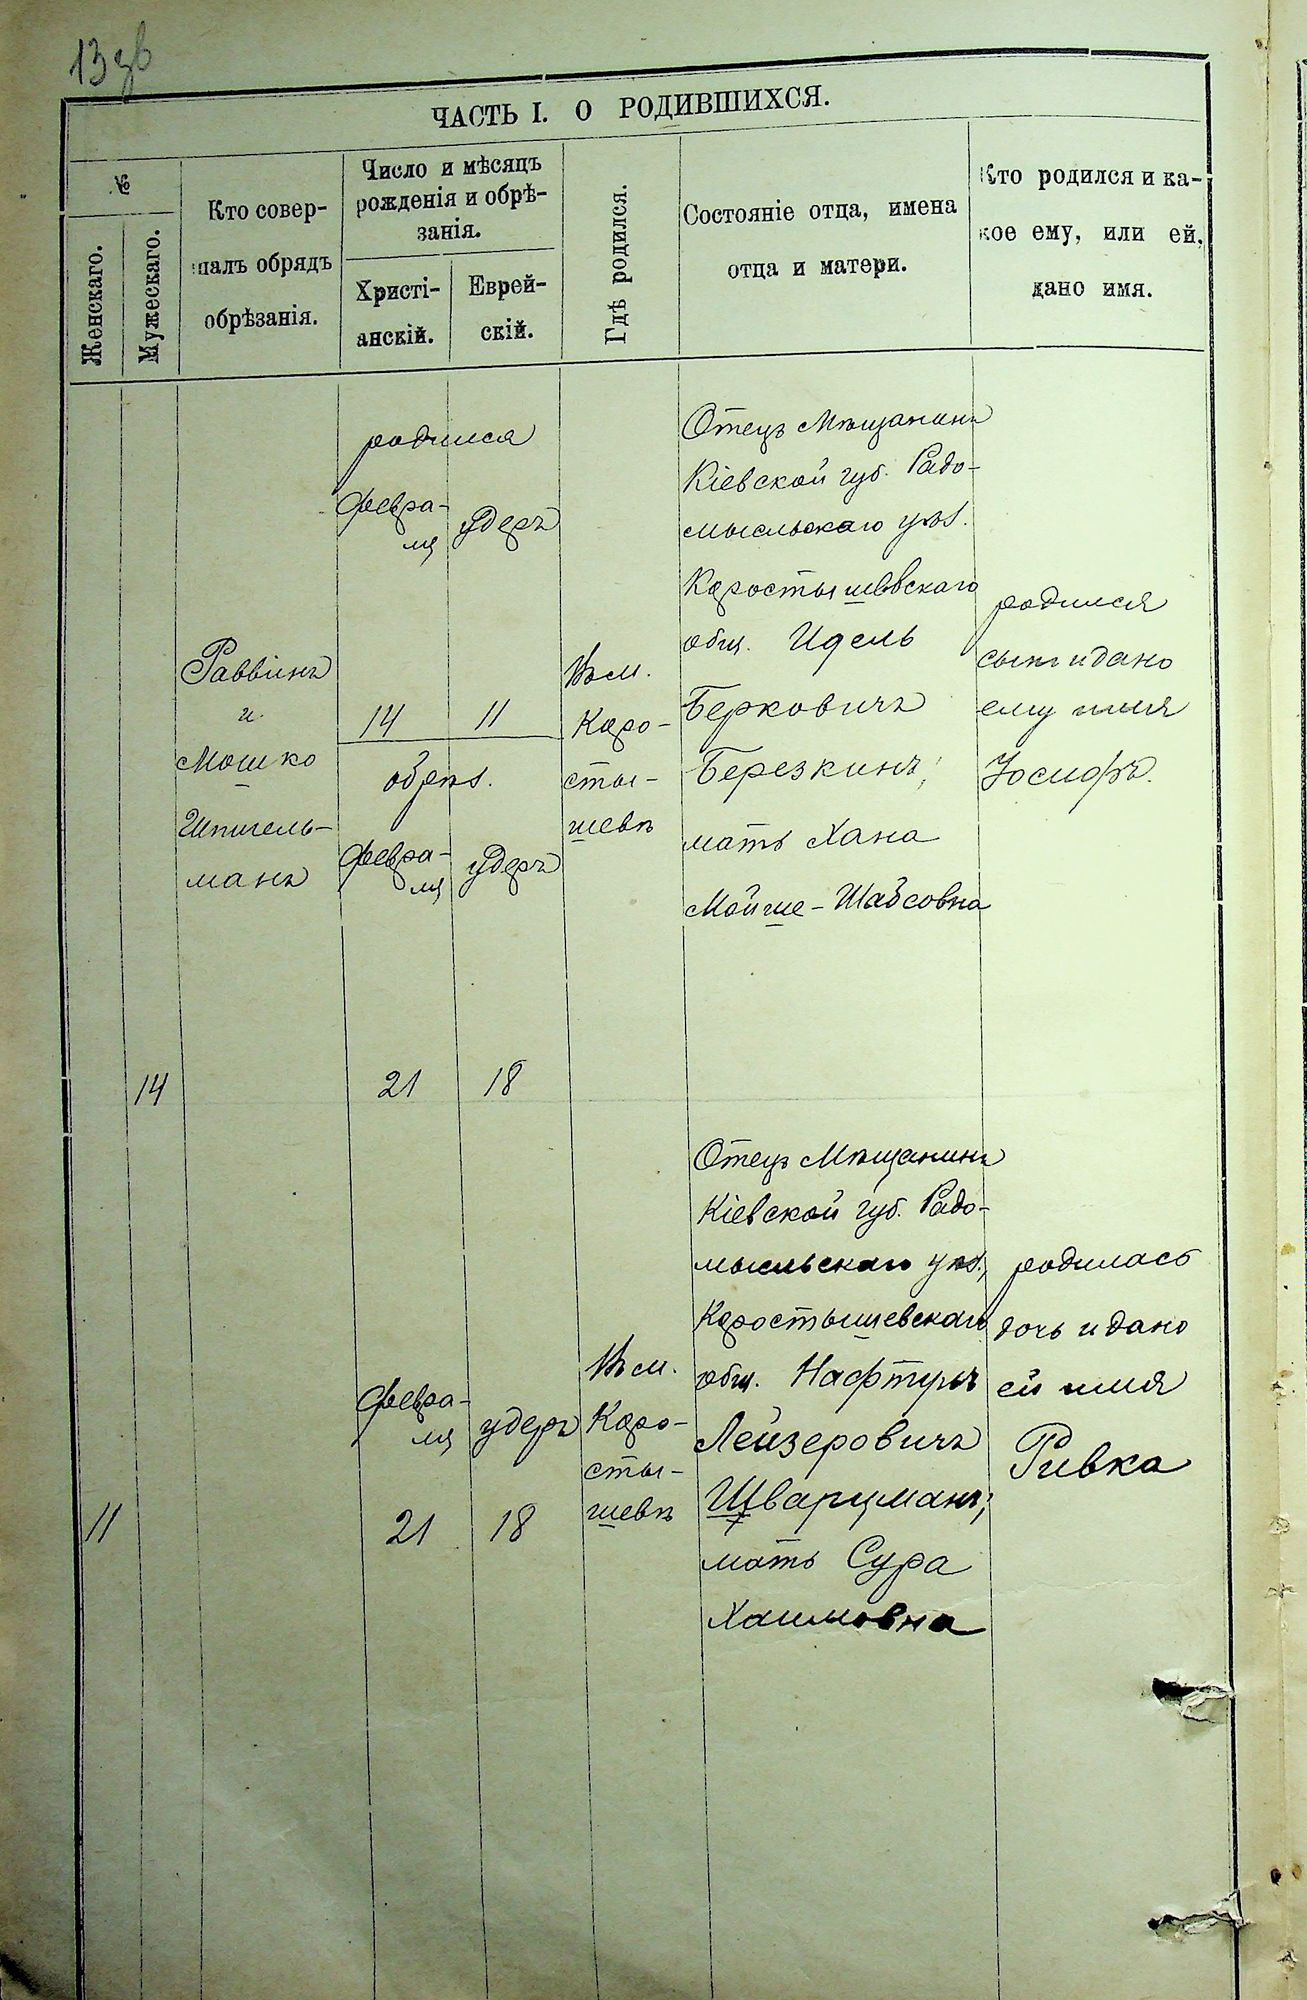 13 зв
ЧАСТЬ I. О РОДИВШИХСЯ.
№
Женскаго.
Мужескаго.
Кто совер-
шалъ обрядъ
обрѣзанія.
Число и мѣсяцъ
рожденія и обрѣ-
занія.
Христі-
анскій.
Еврей-
скій.
Гдѣ родился.
Состояніе отца, имена
отца и матери.
Кто родился и ка-
кое ему, или ей,
дано имя.
14
Раввинъ
и
Мошко
Шпигель-
манъ
родился
Февра-
ля
14
обрѣз.
Февра-
ля
21
Удеръ
11
Удеръ
18
Въ м.
Коро-
сты-
шевѣ
Отецъ Мѣщанинъ
Кіевской губ. Радо-
мысльскаго уѣз.
Коростышевскаго
общ. Идель
Берковичъ
Березкинъ,
мать Хана
Мойше-Шабсовна
родился
сынъ и дано
ему имя
Іосифъ.
11
Февра-
ля
21
Удеръ
18
Въ м.
Коро-
сты-
шевѣ
Отецъ Мѣщанинъ
Кіевской губ. Радо-
мысльскаго уѣз.,
Коростышевскаго
общ. Нафтулъ
Лейзеровичъ
Шварцманъ;
мать Сура
Хаимовна
родилась
дочь и дано
ей имя
Ривка